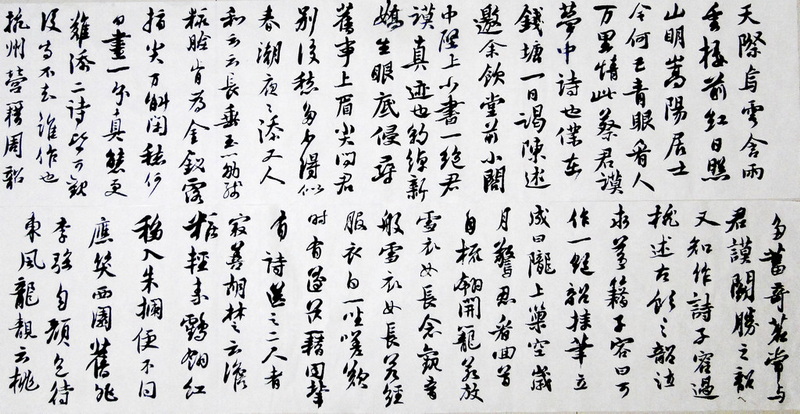 天際烏雲含雨
重樓前紅日照
山明嵩陽居士
今何在青眼看人
万里情此蔡君謨
夢中詩也僕在
錢塘一日謁陳述
邀余飲堂前小閣
中壁上小書一絕君
謨真迹也約綽新
嬌生眼底侵尋
舊事上眉尖問君
別後愁多少得似
春潮夜々添又人
和云云長垂玉筯殘
粧臉肯為金釵露
指尖万斛閑愁何
日盡一分真態更
難添二詩皆可觀
後詩不知誰作也
杭州營籍周韶
多蓄奇茗常與
君謨鬭勝之韶
又知作詩子容過
杭述古飲之韶泣
求落籍子容曰可
作一絕韶援筆立
成曰隴上巢空歲
月驚忍看迴首
自梳翎開籠若放
雪衣女長念觀音
般雪衣女長若經
服衣白一坐嗟歎
時有遂落籍同輩
有詩送之二人者
寂善胡楚云淡
粧輕素鶴翎紅
移入朱欄便不同
應笑西園舊桃
李強勻顏色待
東風龍靚云桃